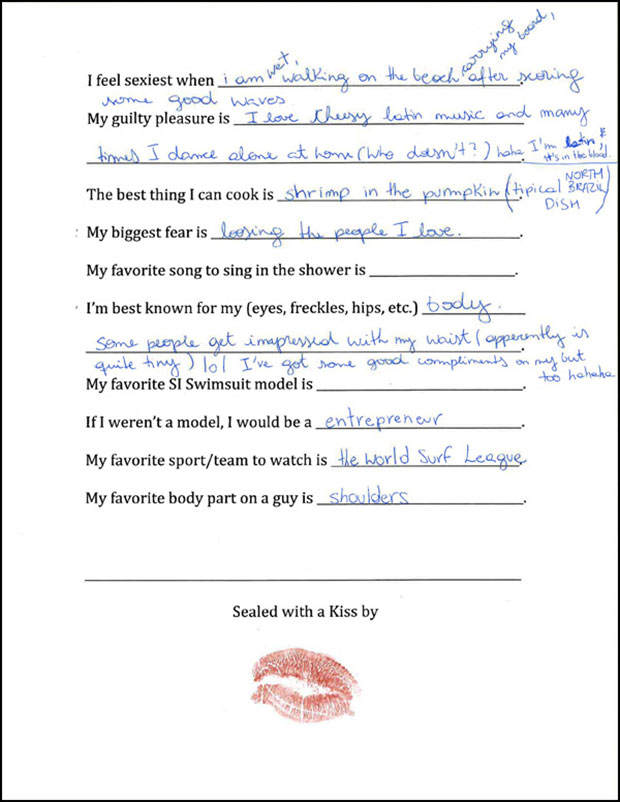 I feel sexiest when i am wet, walking on the beach carrying my board, after scoring
some good waves
My guilty pleasure is I love cheesy latin music and many
times I dance alone at hom (who doesn't?) haha I'm latin & it's in the blood!
The best thing I can cook is shrimp in the pumpkin (tipical NORTH BRAZIL DISH)
My biggest fear is loosing the people I love.
My favorite song to sing in the shower is ____________.
I'm best known for my (eyes, freckles, hips, etc.) body.
Some people get imapressed with my waist (apperently is
quite tiny) lol I've got some good compliments on my but too hahaha
My favorite SI Swimsuit model is ____________.
If I weren't a model, I would be a entrepreneur.
My favorite sport/team to watch is the World Surf League.
My favorite body part on a guy is shoulders.
Sealed with a Kiss by